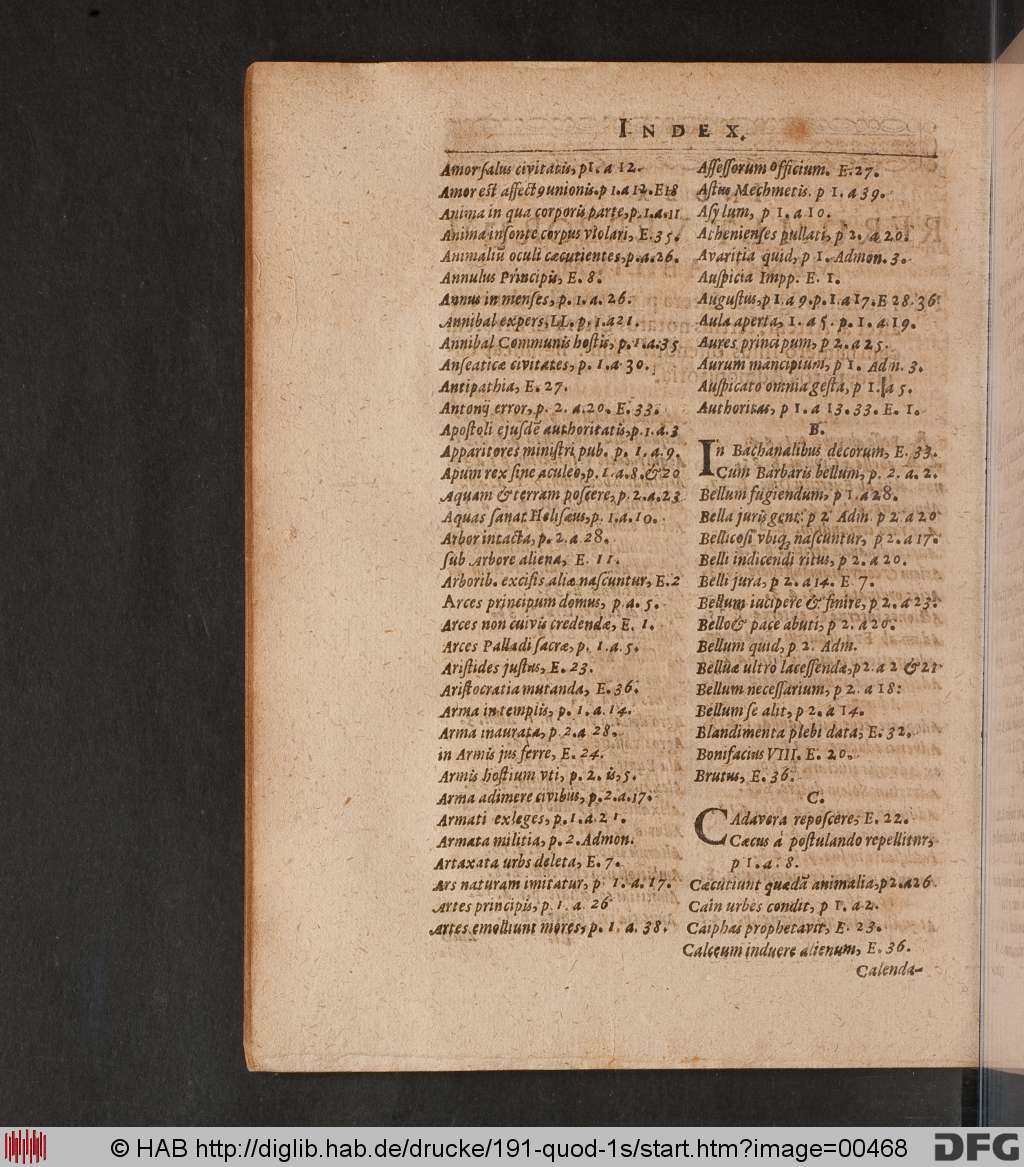 INDEX.
Amor salus civitatis, p1. a 12.
Amor est affectꝯ unionis. p 1. a 12. E 18
Anima in qua corporis parte, p. 1. a. 11
Anima insonte corpus violari, E. 35.
Animaliū oculi cæcutientes, p. a. 26.
Annulus Principis, E. 8.
Annus in menses, p. 1. a. 26.
Annibal expers, LL. p. 1. a 21.
Annibal Communis hostis, p. 1. a. 35
Anseaticæ civitates, p. 1. a 30.
Antipathia, E. 27.
Antonij error, p. 2. a. 20. E. 33.
Apostoli ejusdē authoritatis, p. 1. a. 3
Apparitores ministri pub. p. 1. a. 9.
Apum rex sine aculeo, p. 1. a. 8. & 20
Aquam & terram poscere, p. 2. a. 23
Aquas sanat Helisæus, p. 1. a. 10.
Arbor intacta, p. 2. a 28.
sub Arbore aliena, E. 11.
Arborib. excisis aliæ nascuntur, E. 2
Arces principum domus, p a. 5.
Arces non cuivis credendæ, E. 1.
Arces Palladi sacræ, p. 1. a. 5.
Aristides justus, E. 23.
Aristocratia mutanda, E. 36.
Arma in templis, p. 1. a. 14.
Arma inaurata, p. 2. a 28.
in Armis jus ferre, E. 24.
Armis hostium vti, p. 2. is, 5.
Arma adimere civibus, p. 2. a. 17.
Armati exleges, p. 1. a. 21.
Armata militia, p. 2. Admon.
Artaxata urbs deleta, E. 7.
Ars naturam imitatur, p. 1. a. 17.
Artes principis, p. 1. a. 26
Artes emolliunt mores, p. 1. a. 38.
Assessorum officium. E. 27.
Astus Mechmetis. p 1. a 39.
Asylum, p 1. a 10.
Athenienses pullati, p 2. a 20.
Avaritia quid, p 1. Admon. 3.
Auspicia Impp. E. 1.
Augustus, p 1. a 9. p. 1. a 17. E 28. 36.
Aula aperta, 1. a 5. p. 1. a. 19.
Aures principum, p 2. a 25.
Aurum mancipium, p 1. Adm. 3.
Auspicato omnia gesta, p 1. a 5.
Authoritas, p 1. a 13. 33. E. 1.
B.
In Bachanalibus decorum, E. 33.
Cum Barbaris bellum, p. 2. a. 2.
Bellum fugiendum, p 1. a 28.
Bella juris gent. p 2 Adm p 2. a 20
Bellicosi vbiq; nascuntur, p 2. a 17.
Belli indicendi ritus, p 2. a 20.
Belli jura, p 2. a 14. E 7.
Bellum iucipere & finire, p 2. a 23.
Bello & pace abuti, p 2. a 20.
Bellum quid, p 2. Adm.
Belluæ ultro lacessendæ, p 2. a 2 & 21
Bellum necessarium, p 2. a 18:
Bellum se alit, p 2. a 14.
Blandimenta plebi data, E. 32.
Bonifacius VIII. E. 20.
Brutus, E. 36.
C.
CAdavera reposcere, E. 22.
Cæcus á postulando repellitur,
p 1. a. 8.
Cæcutiunt quædā animalia, p 2. a 26
Cain urbes condit, p 1. a 2.
Caiphas prophetavit, E. 23.
Calceum induere alienum, E. 36.
Calenda-
© HAB http://diglib.hab.de/drucke/191-quod-1s/start.htm?image=00468
DFG